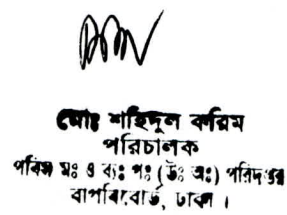 মোঃ শাহিদুল করিম
পরিচালক
পবিস মঃ ও ব্যঃ পঃ (উঃ অঃ) পরিদপ্তর
বাপবিবোর্ড, ঢাকা।